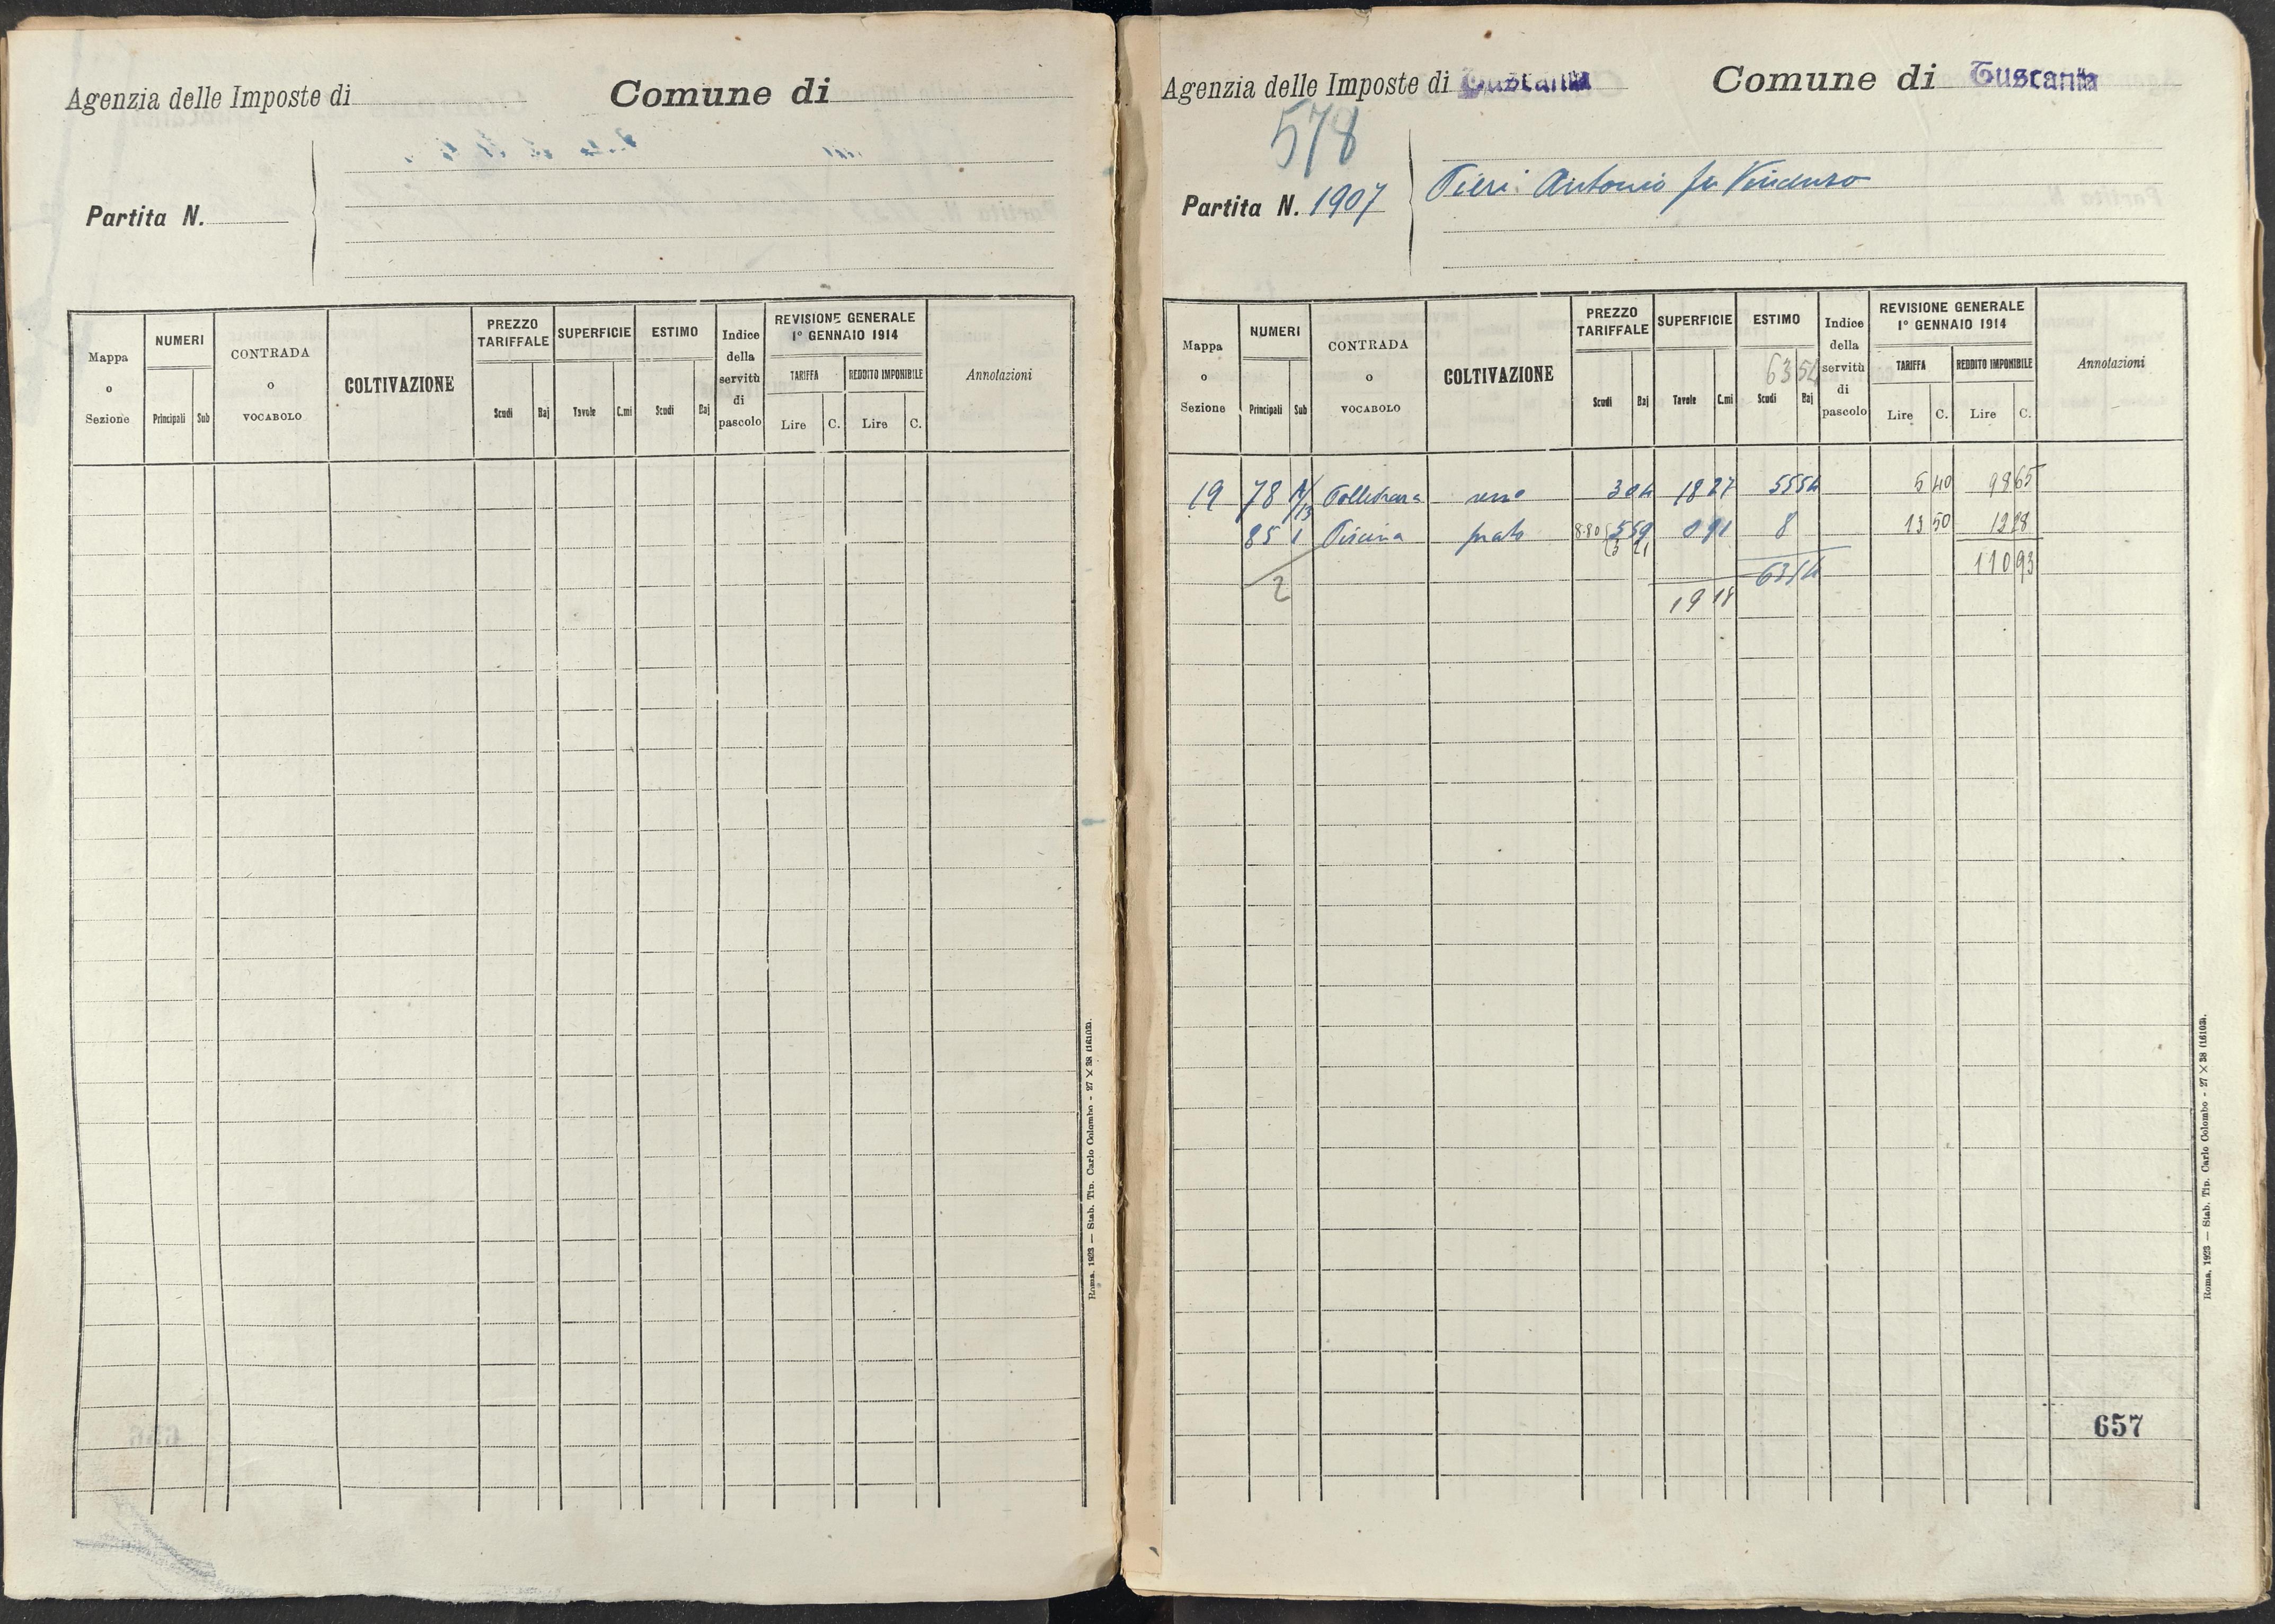 Agenzia delle Imposte di
Comune di
Partita N.
Mappa o Sezione
NUMERI
Principali Sub
CONTRADA o VOCABOLO
COLTIVAZIONE
PREZZO TARIFFALE
Scudi Baj
SUPERFICIE
Tavole C.mi
ESTIMO
Scudi Baj
Indice della servitù di pascolo
REVISIONE GENERALE
1° GENNAIO 1914
TARIFFA REDDITO IMPONIBILE
Lire C. Lire C.
Annotazioni
Roma, 1923 — Stab. Tip. Carlo Colombo - 27 × 38 (16103).
Agenzia delle Imposte di Tuscania
Comune di Tuscania
578
Partita N. 1907
Pieri Antonio fu Vincenzo
Mappa o Sezione
NUMERI
Principali Sub
CONTRADA o VOCABOLO
COLTIVAZIONE
PREZZO TARIFFALE
Scudi Baj
SUPERFICIE
Tavole C.mi
ESTIMO
6354
Scudi Baj
Indice della servitù di pascolo
REVISIONE GENERALE
1° GENNAIO 1914
TARIFFA REDDITO IMPONIBILE
Lire C. Lire C.
Annotazioni
19 78 304 18 27 5554 5 40 98 65
85 1 Piscina prato 8.80 559 0 91 8 13 50 12 28
3 21
2 6354 110 93
19 18
657
Roma, 1923 — Stab. Tip. Carlo Colombo - 27 × 38 (16103).